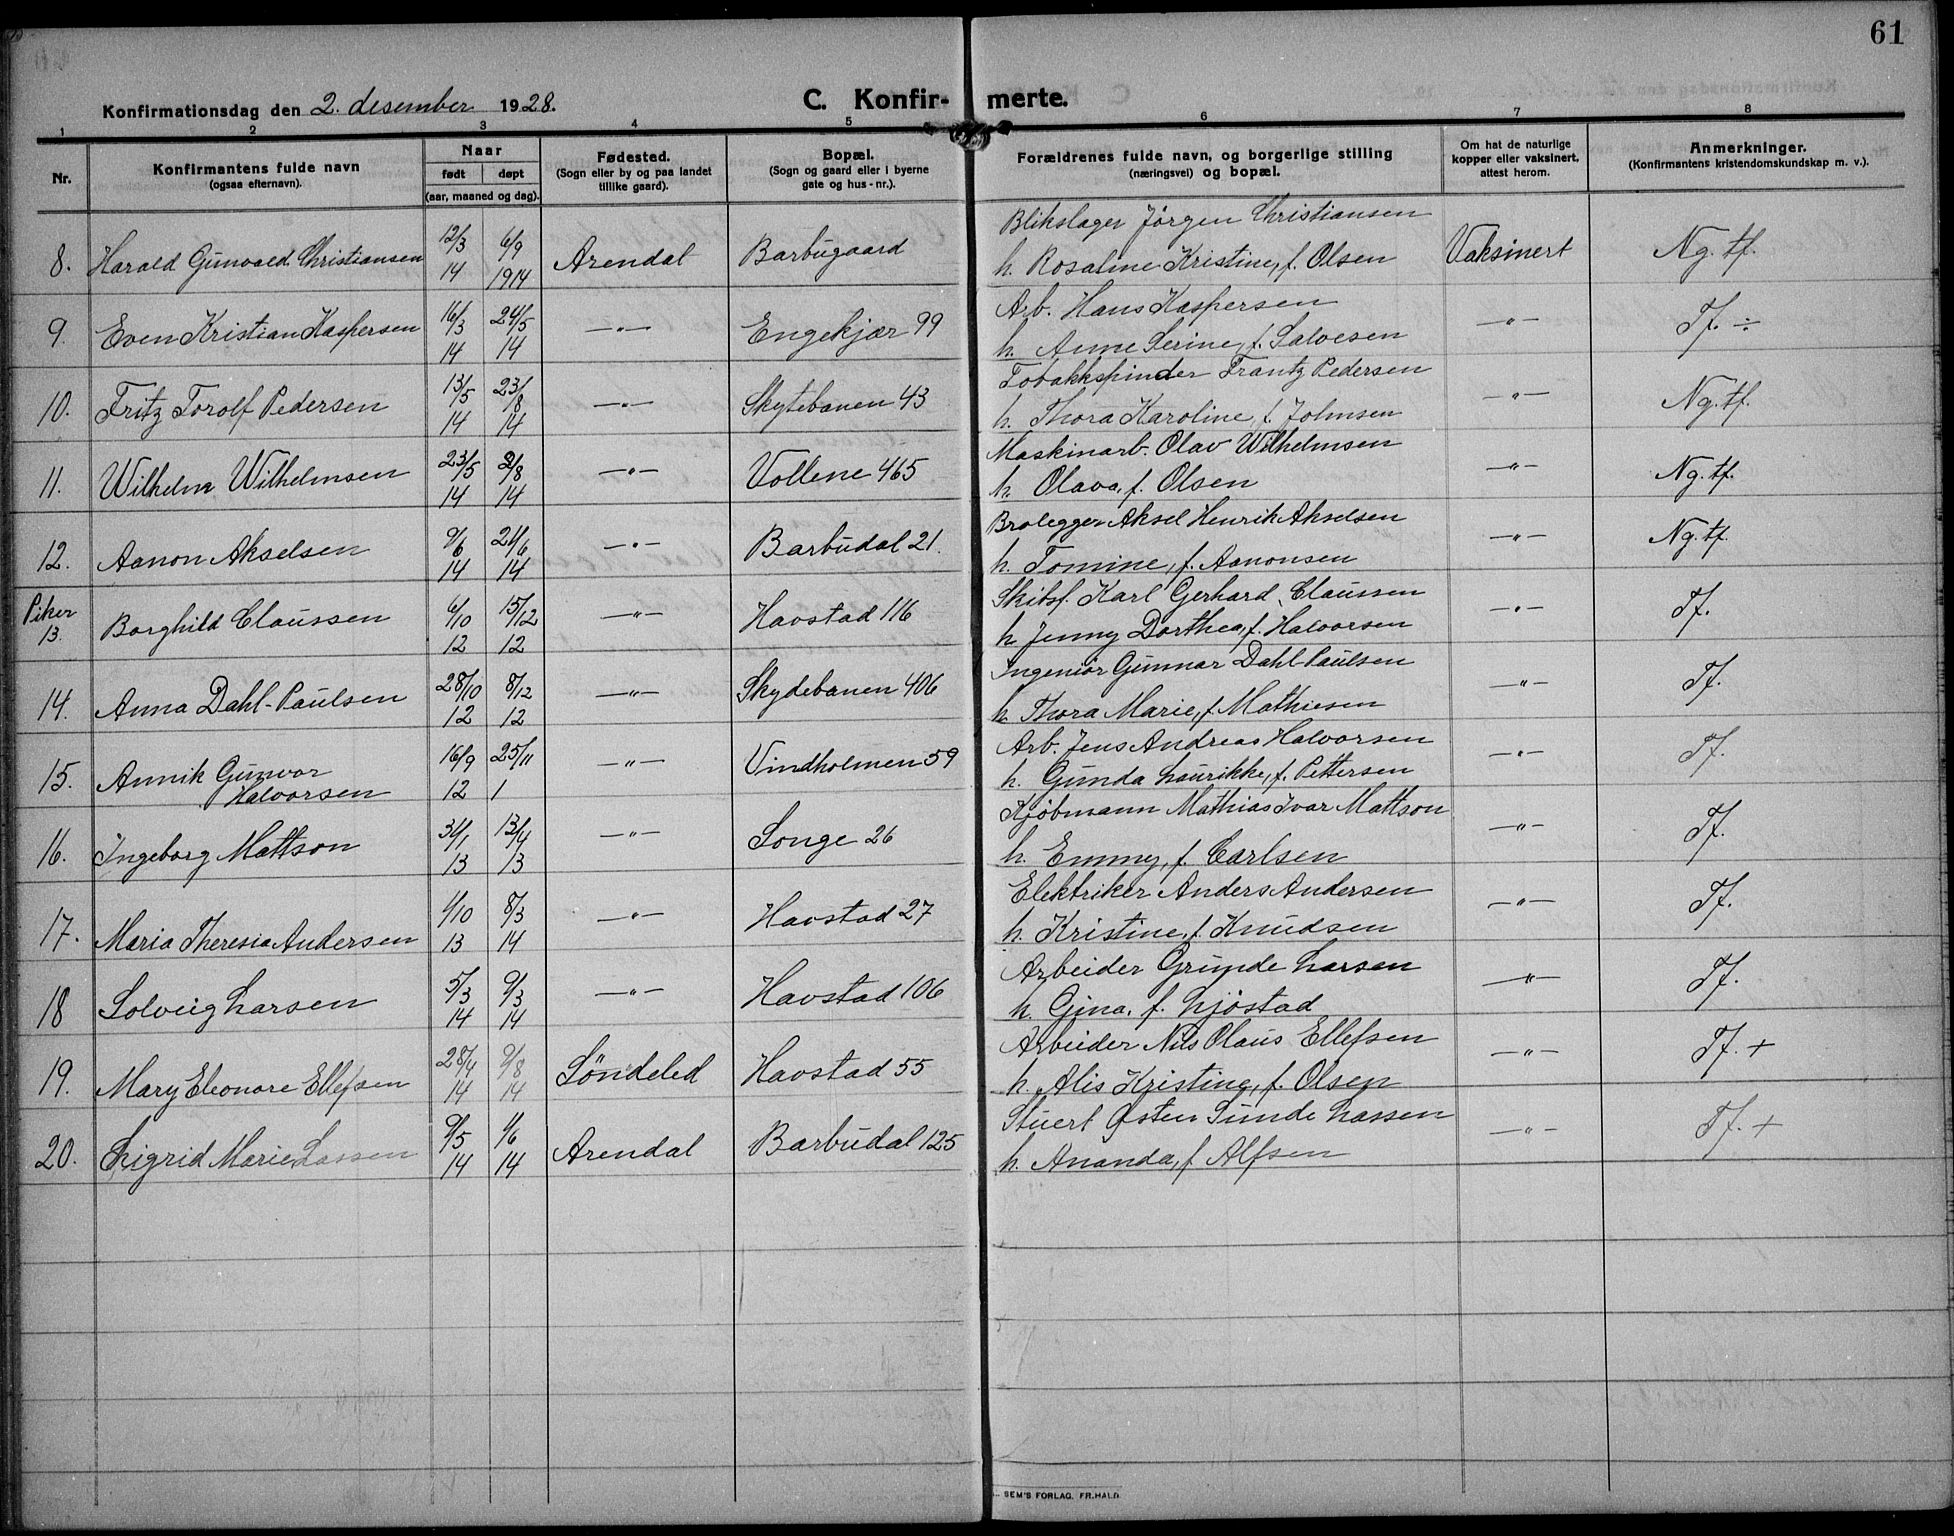 61
Konfirmationsdag den 2. desember 1928.
C. Konfir- merte.
1 2 3 4 5 6 7 8
Nr.
Konfirmantens fulde navn
(ogsaa efternavn).
Naar
født døpt
(aar, maaned og dag).
Fødested.
(Sogn eller by og paa landet
tillike gaard).
Bopæl.
(Sogn og gaard eller i byerne
gate og hus-nr.).
Forældrenes fulde navn, og borgerlige stilling
(næringsvei) og bopæl.
Om hat de naturlige
kopper eller vaksinert,
attest herom.
Anmerkninger.
(Konfirmantens kristendomskundskap m. v.).
Blikslager Jörgen Christiansen
8. Harald Gunvald Christiansen 12/3 14 6/9 1914 Arendal Barbugaard h. Rosaline Kristine, f. Olsen Vaksinert Ng. tf.
Arb. Hans Kaspersen
9. Even Kristian Kaspersen 16/3 14 24/5 14 —"— Engekjær 99 h. Anne Serine, f. Salvesen —"— Tf. ÷
Tobakkspinder Frantz Pedersen
10. Fritz Torolf Pedersen 13/5 14 23/8 14 —"— Skytebanen 43 h. Thora Karoline, f. Johnsen —"— Ng. tf.
Maskinarb. Olav Wilhelmsen
11. Wilhelm Wilhelmsen 23/5 14 2/8 14 —"— Vollene 465 h. Olava, f. Olsen —"— Ng. tf.
Brolegger Aksel Henrik Akselsen
12. Aanon Akselsen 9/6 14 21/6 14 —"— Barbudal 21. h. Tomine, f. Aanonsen —"— Ng. tf.
Piker
Skibsf. Karl Gerhard Claussen
13. Borghild Claussen 6/10 12 15/12 12 —"— Havstad 116 h. Jenny Dorthea, f. Halvorsen —"— Tf.
Ingeniör Gunnar Dahl-Paulsen
14. Anna Dahl-Paulsen 28/10 12 8/12 12 —"— Skydebanen 406 h. Thora Marie, f. Mathiesen —"— Tf.
Arb. Jens Andreas Halvorsen
15. Annik Gunvor
Halvorsen 16/9 12 25/11 1 —"— Vindholmen 59 h. Gunda Laurikke, f. Pettersen —"— Tf.
Kjöbmann Mathias Ivar Mattson
16. Ingeborg Mattson 31/1 13 13/4 13 —"— Songe 26 h. Emmy, f. Carlsen —"— Tf.
Elektriker Anders Andersen
17. Maria Theresia Andersen 4/10 13 8/3 14 —"— Havstad 27 h. Kristine, f. Knudsen —"— Tf.
Arbeider Grunde Larsen
18 Solveig Larsen 5/3 14 9/3 14 —"— Havstad 106 h. Gina, f. Ljöstad —"— Tf.
Arbeider Nils Olaus Ellefsen
19. Mary Eleonore Ellefsen 28/4 14 9/8 14 Söndeled Havstad 55 h. Alis Kristine, f. Olsen —"— Tf. +
Stuert Østen Sunde Lassen
20. Sigrid Marie Lassen 9/5 14 1/6 14 Arendal Barbudal 125 h. Ananda, f. Alfsen —"— Tf. +
SEM'S FORLAG. FR.HALD.